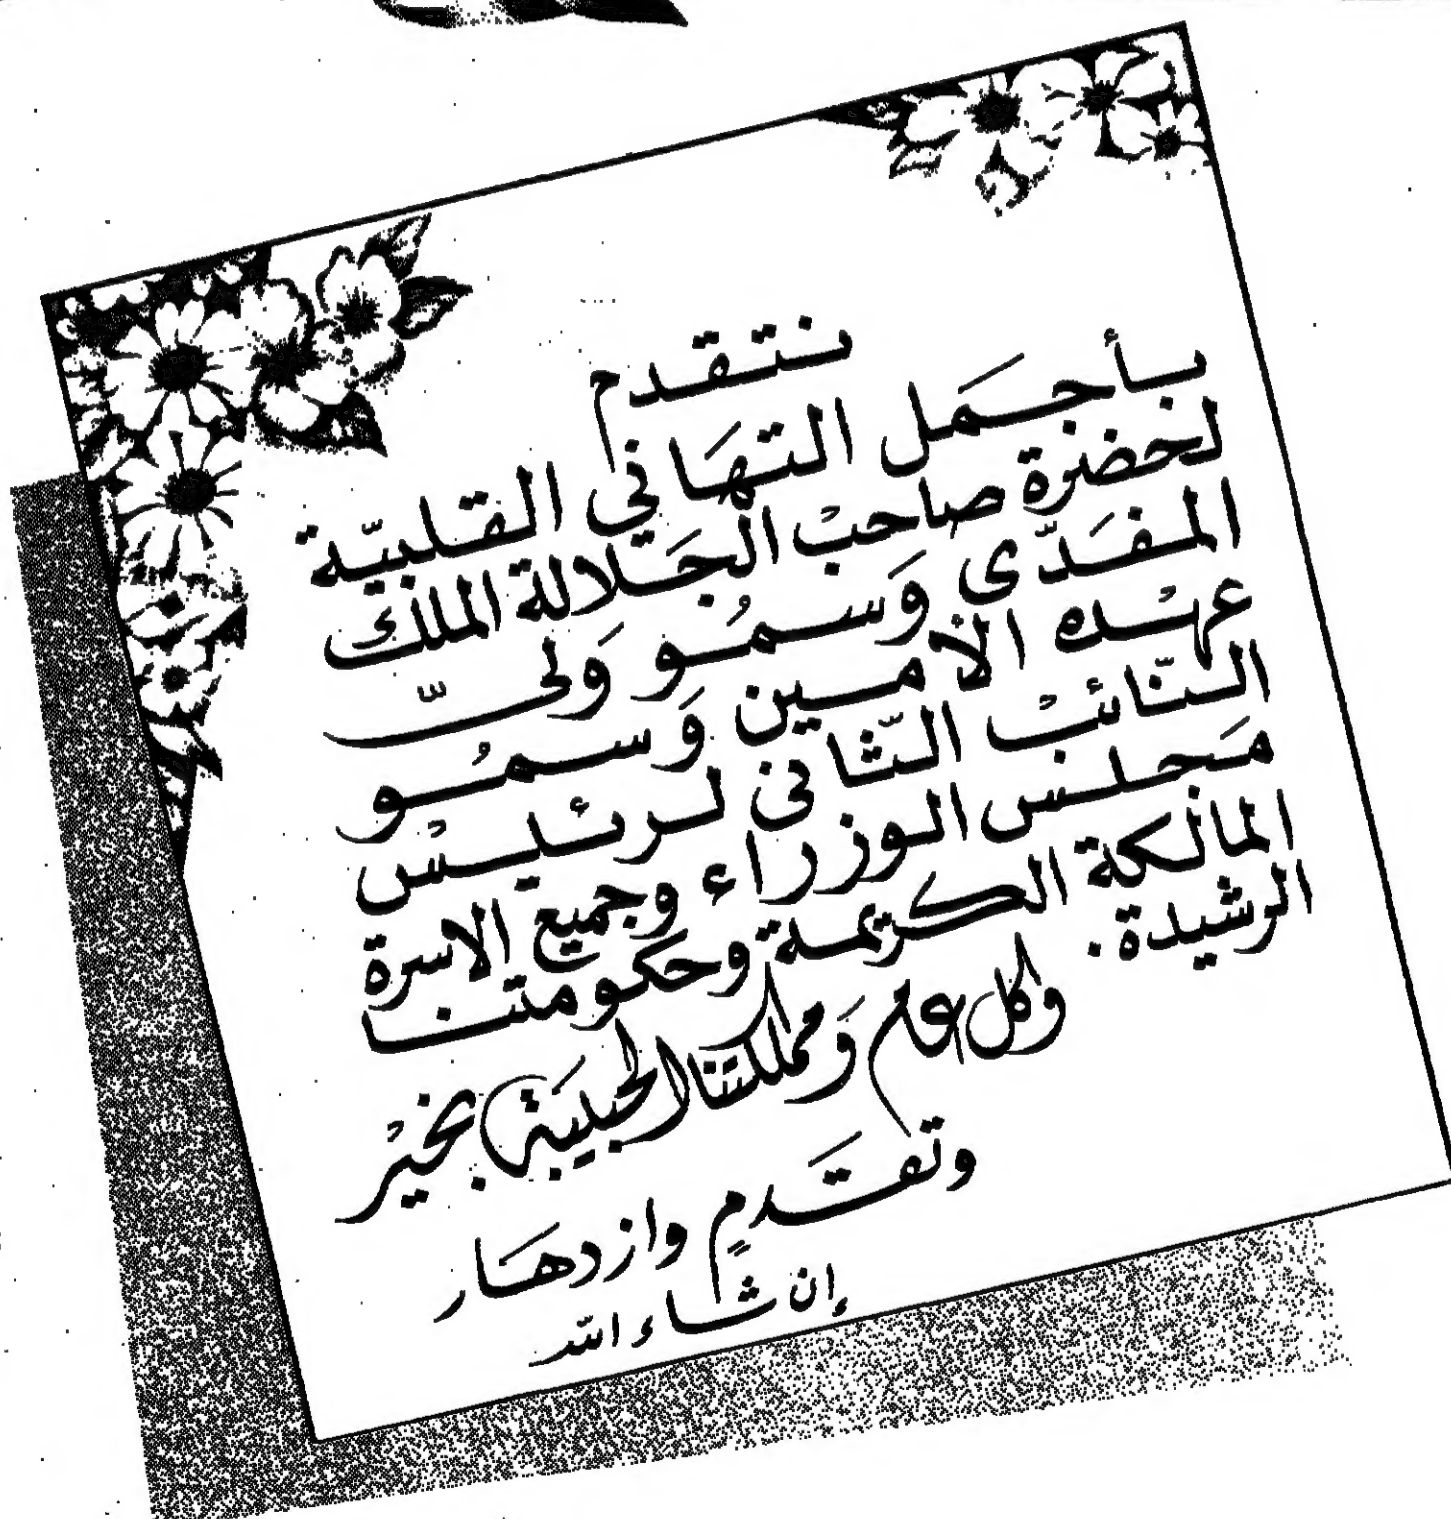 نتقدم
بأجمَل التهَاني القلبيّة
لحضرة صاحبْ الجَلالة الملك
المفَدّى وَسمُو وَليّ
عهْده الأمين وَسمُو
النّائبْ الثّاني لرئيسْ
مَجلس الوزراء وجميع الاسرة
المالكة الكريمة وحكومتنا
الرشيدة.
وكل عام وَمملكتنا الحَبيبَة بخيْر
وتقَدمٍ وازدهَار
إن شاء الله